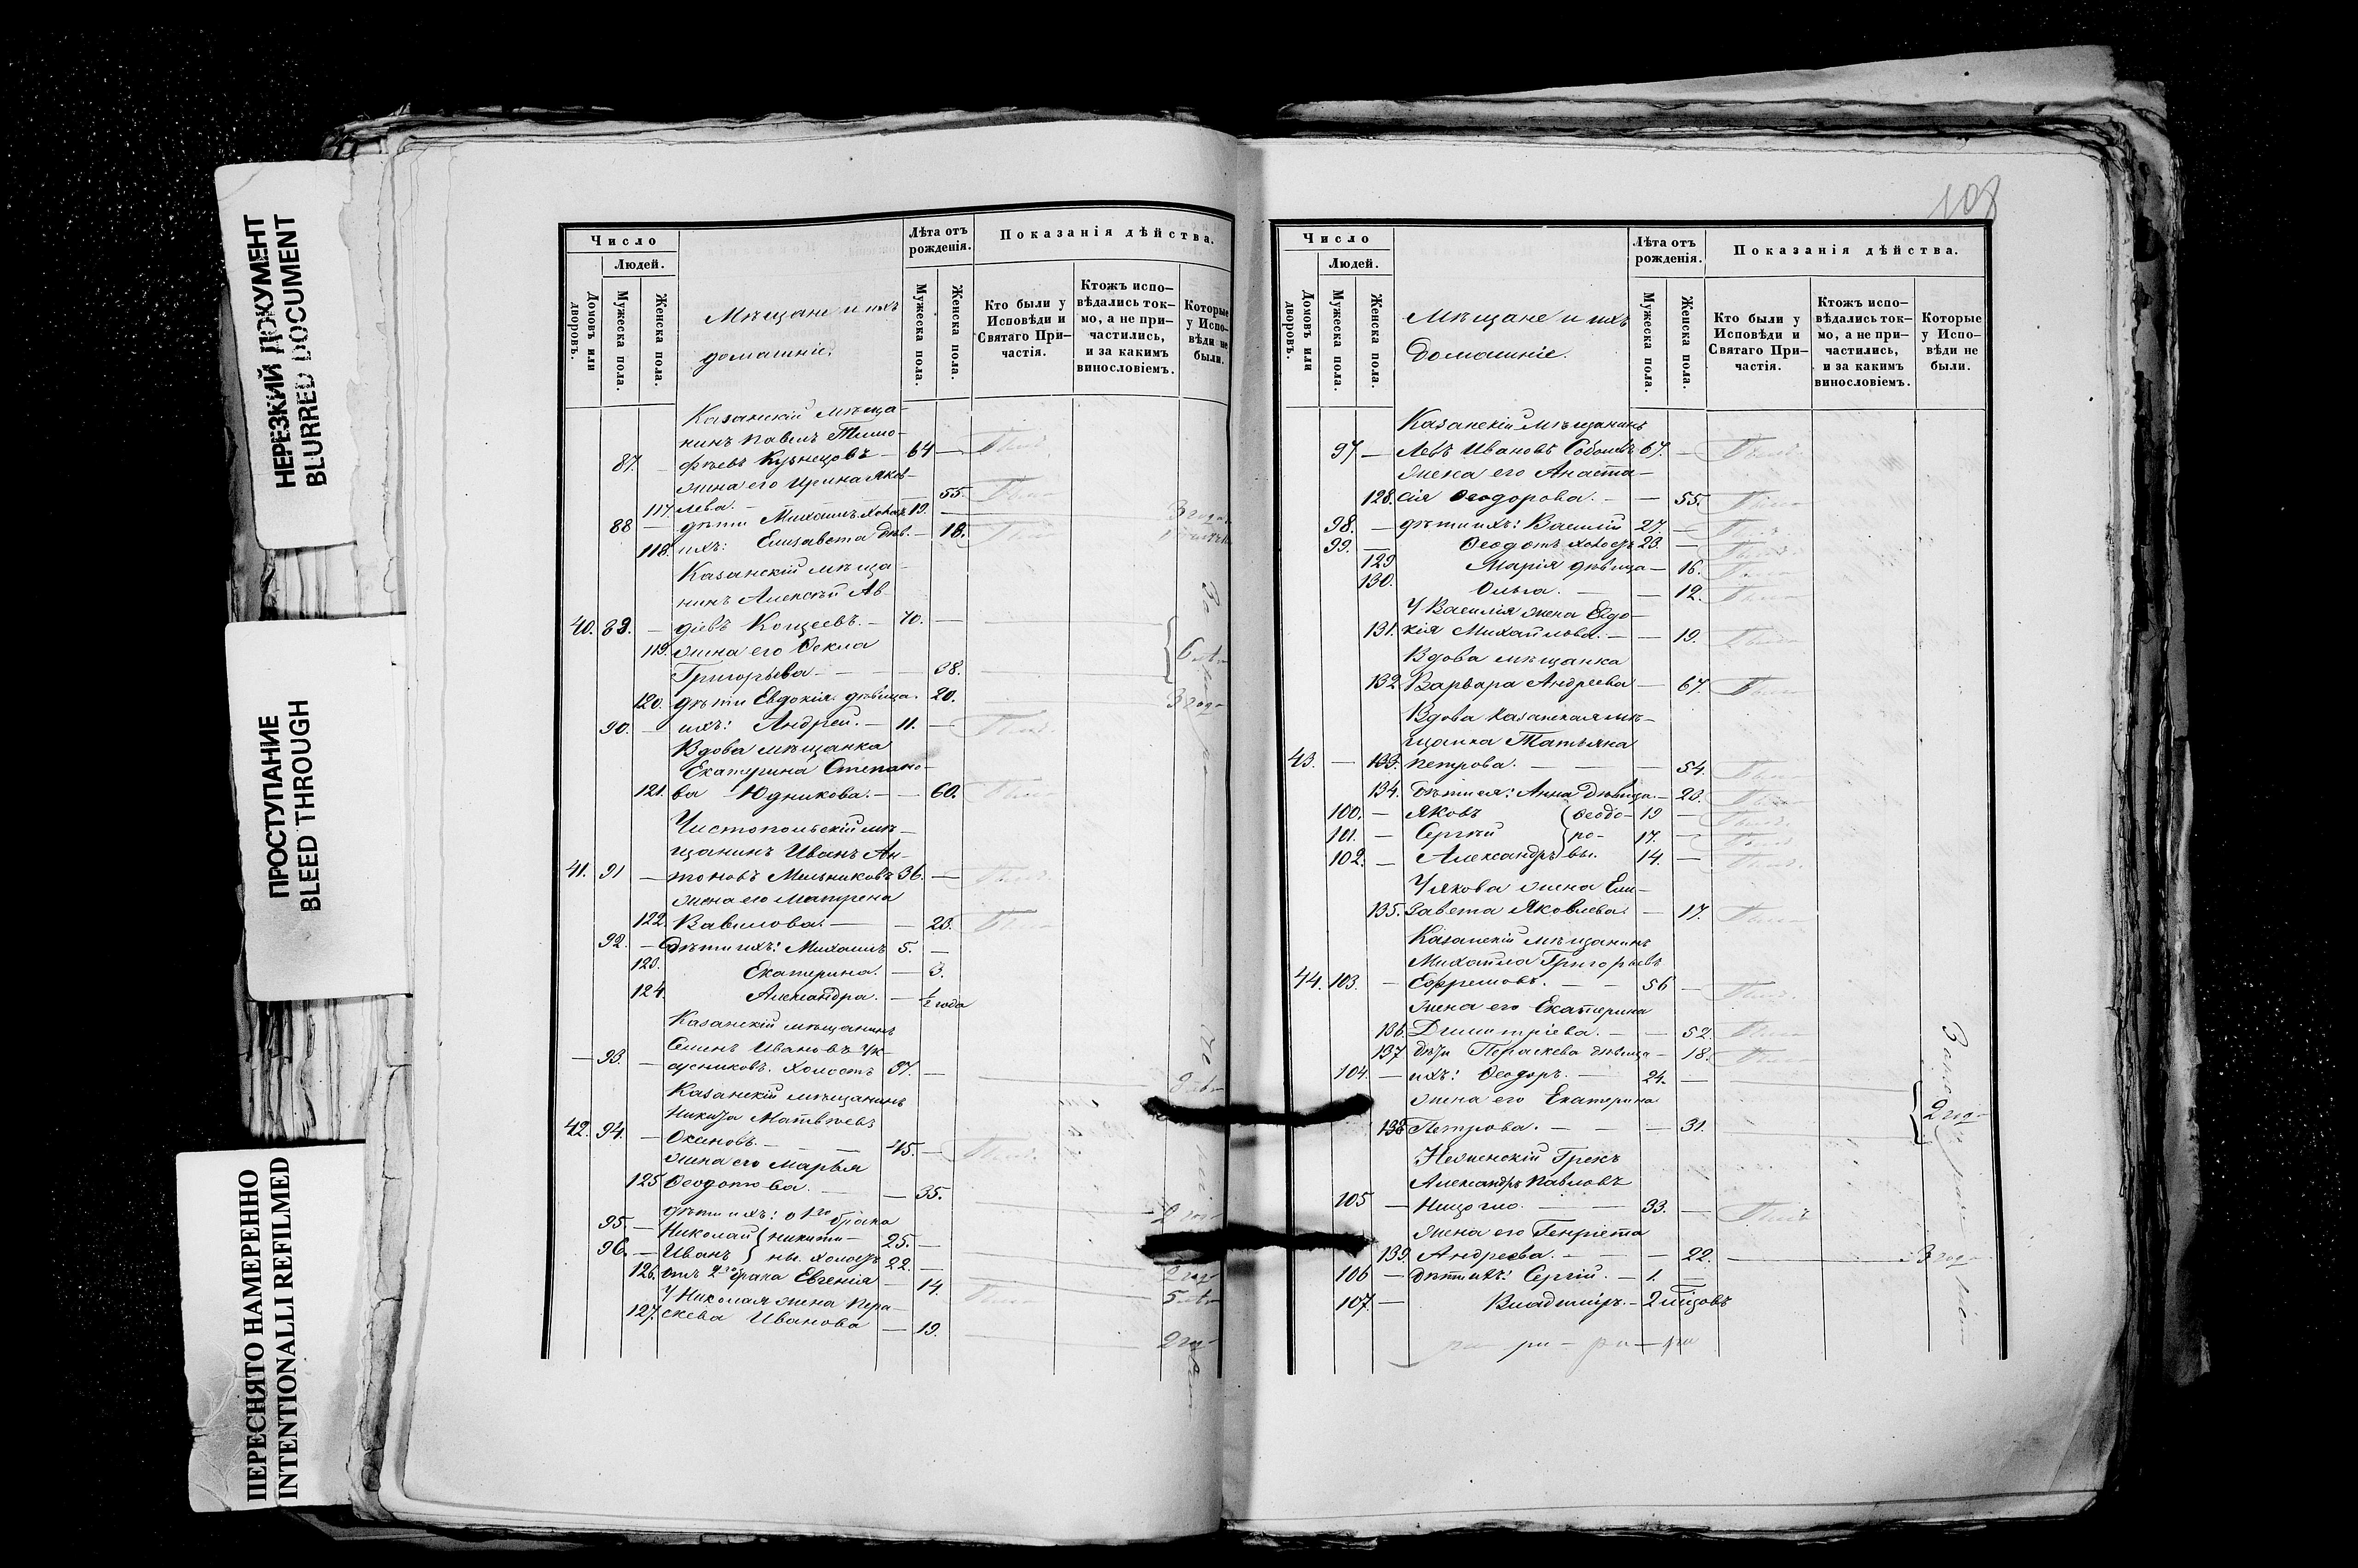 НЕРЕЗКИЙ ДОКУМЕНТ
BLURRED DOCUMENT
ПРОСТУПАНИЕ
BLEED THROUGH
ПЕРЕСНЯТО НАМЕРЕННО
INTENTIONALLI REFILMED
Число
Людей.
Домовъ или дворовъ.
Мужеска пола.
Женска пола.
Мѣщане и ихъ
домашніе.
Лѣта отъ рожденія.
Мужеска пола.
Женска пола.
Показанія дѣйства.
Кто были у Исповѣди и Святаго При-частія.
Ктожъ испо-вѣдались ток-мо, а не при-частились, и за какимъ винословіемъ.
Которые у Испо-вѣди не были.
Казанскій мѣща-
нинъ Павелъ Тимо-
87. — фѣевъ Кузнецовъ — 64 — Былъ
жена его Ирина Яков-
117. лева. — 55. Была
88 — дѣти Михаилъ холос. 19. — 3 года
118. ихъ: Елизавета дѣв. — 18. Была
Казанскій мѣща-
нинъ Алексѣй Ав-
40. 89. — діевъ Кощеевъ. — 70. —
119. жена его Ѳекла
Григорьева — 38. 6 лѣтъ
120. дѣти Евдокія дѣвица. 20. 3 года
90. — ихъ: Андрей. — 11. — Былъ
Вдова мѣщанка
Екатерина Степано-
121. ва Юдникова. — — 60. Была
Чистопольскій мѣ-
щанинъ Иванъ Ан-
41. 91 — тоновъ Мельниковъ 36. — Былъ
жена его Матрена
122. Вавилова. — — 23. Была
92. — Дѣти ихъ: Михаилъ 5. —
123. Екатерина. — 3.
124. Александра. — ½ года
Казанскій мѣщанинъ
Семенъ Ивановъ Ук-
— 93. — сусниковъ. холостъ 37. —
Казанскій мѣщанинъ
Никита Матвѣевъ
42. 94. — Окиновъ. — 45. — Былъ
жена его Марья
125 Ѳеодотова. — — 35.
дѣти ихъ: о 1го брака
95. — Николай { Никити- 25. —
96. — Иванъ } ны. холостъ 22. —
126. отъ 2го брака Евгенія — 14. Была
У Николая жена Пара-
127. скева Иванова — 19.
108
Число
Людей.
Домовъ или дворовъ.
Мужеска пола.
Женска пола.
Мѣщане и ихъ
Домашніе.
Лѣта отъ рожденія.
Мужеска пола.
Женска пола.
Показанія дѣйства.
Кто были у Исповѣди и Святаго При-частія.
Ктожъ испо-вѣдались ток-мо, а не при-частились, и за какимъ винословіемъ.
Которые у Испо-вѣди не были.
Казанскій мѣщанинъ
97 — Левъ Ивановъ Соболевъ 67. — Былъ.
жена его Анаста-
128. сія Ѳеодорова. — — 55. Была
98. — дѣти ихъ: Василій 27. — Былъ
99. — Ѳеодотъ холостъ 23. — Былъ.
129 Марія дѣвица — 16. Была
130. Ольга. — — 12. Была
У Василія жена Евдо-
131. кія Михайлова. — — 19. Была
Вдова мѣщанка
132 Варвара Андреева — 67. Была
Вдова Казанская мѣ-
щанка Татьяна
43. — 133. Петрова. — — 54. Была
134. Дѣти ея: Анна дѣвица. — 23. Была
100. — Яковъ { Ѳеодо- 19 — Былъ.
101. — Сергѣй } ро- 17. — Былъ
102. — Александръ } вы. 14. — Былъ.
У Якова жена Ели-
135. завета Яковлева. — 17. Была
Казанскій мѣщанинъ
Михаила Григорьевъ
44. 103. — Ефремовъ. — — 56 — Былъ.
жена его Екатерина
136. Димитріева. — — 52. Была
137 дѣти Параскева дѣвица — 18. Была
104. — ихъ: Ѳеодоръ. — 24. —
жена его Екатерина
138 Петрова. — — 31. 2 года
Нѣжинскій Грекъ
Александръ Павловъ
105 — — — 33. — Былъ
жена его Генріета
139. Андреева. — — 22. — 3 года
106 — дѣти ихъ: Сергій. — 1. —
107. — Владиміръ. — 2 мѣсяцовъ